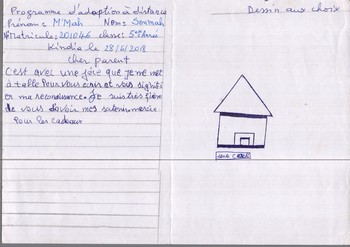 Programme d'adoption à distance
Prénom: M'Mah Nom: Soumah
N°Matricule: 201046 classe: 5eme Année
Kindia le 28/6/2018
cher parent
C'est avec une joie que je me met
à table pour vous écris et vous signifi
er ma reconnaissance. Je suis très fière
de vous d'avoir mes
Pour les cadeaux
Dessin aux choix